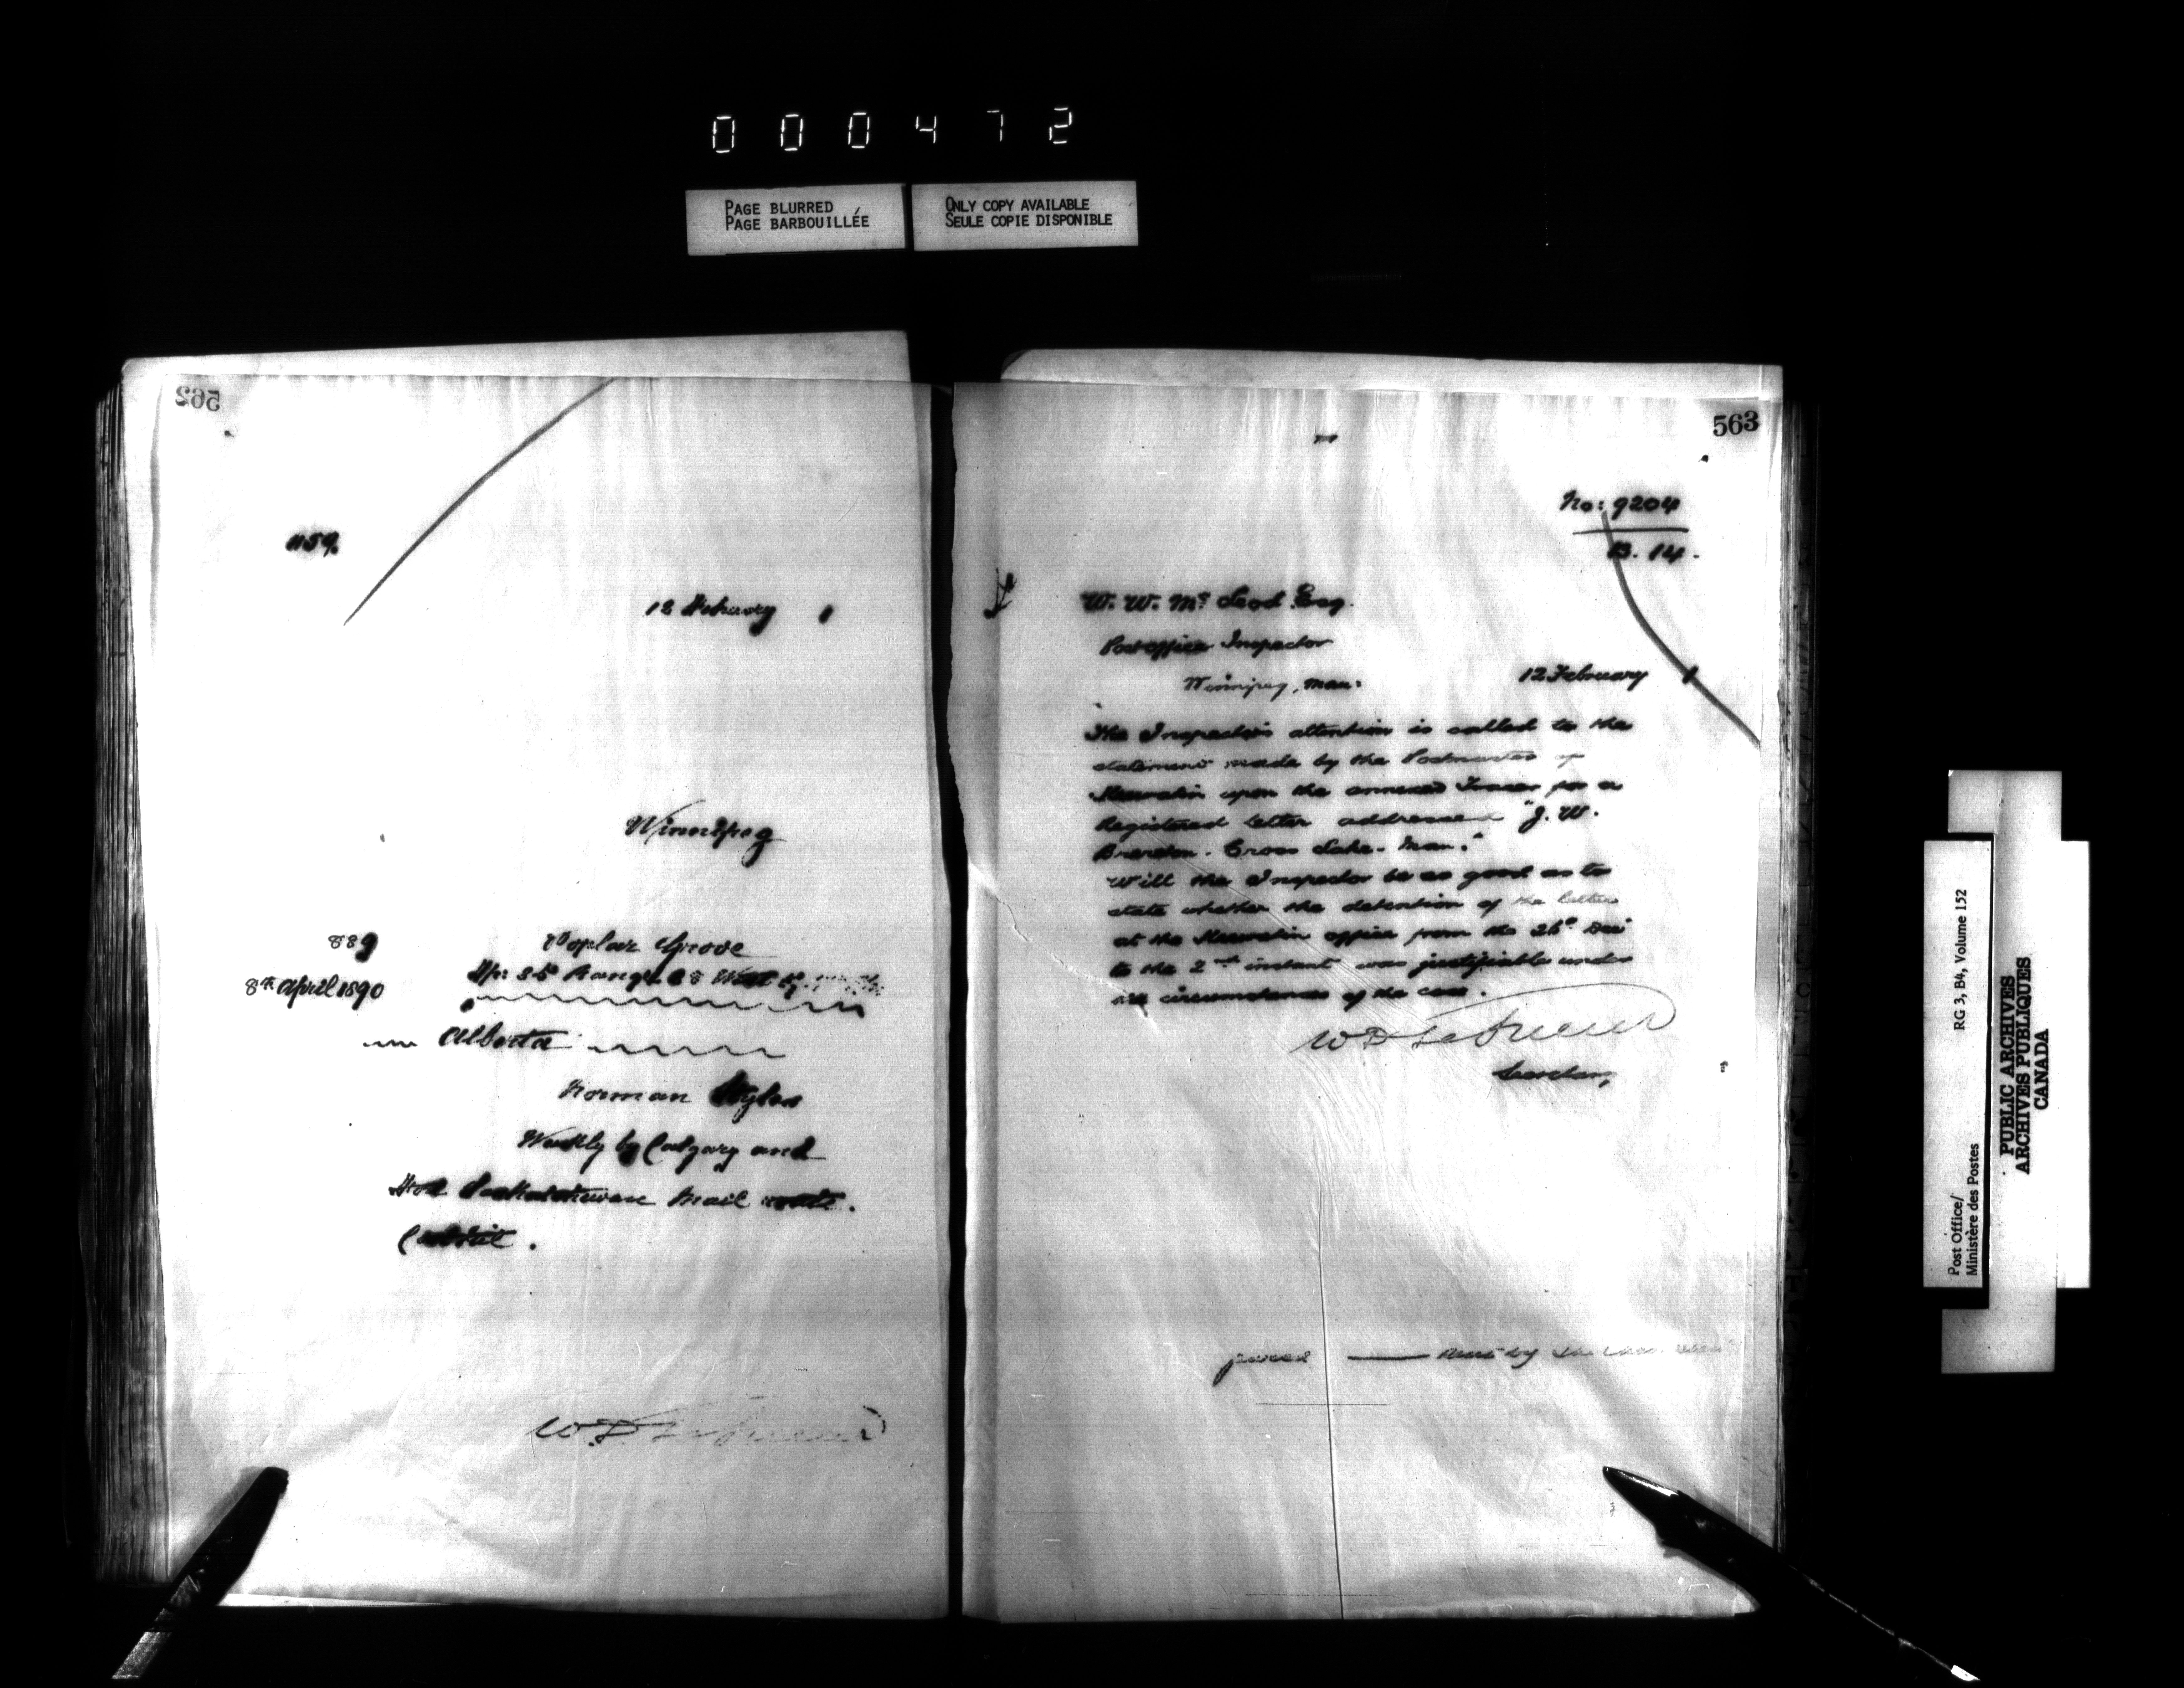 000472
PAGE BLURRED
PAGE BARBOUILLÉE
ONLY COPY AVAILABLE
SEULE COPIE DISPONIBLE
562
1159.
12 February 1
Winnipeg
889
8th April 1890
Poplar Grove
Tp: 35 Range 28 West
Alberta
Norman
Weekly by Calgary and
Saskatchewan Mail route.
W D LeSueur
563
No: 9204
B. 14.
W. W. McLeod Esq.
Post office Inspector
Winnipeg, Man:
12 February 1
The Inspector's attention is called to the
statement made by the Postmaster of
Keewatin upon the annexed Tracer for a
Registered letter addressed "J. W.
Cross Lake. Man."
Will the Inspector be so good as to
state whether the detention of the letter
at the Keewatin office from the 26th Dec
to the 2nd instant was justifiable under
the circumstances of the case.
W D LeSueur
Secretary
Post Office/
Ministère des Postes
RG 3, B4, Volume 152
PUBLIC ARCHIVES
ARCHIVES PUBLIQUES
CANADA